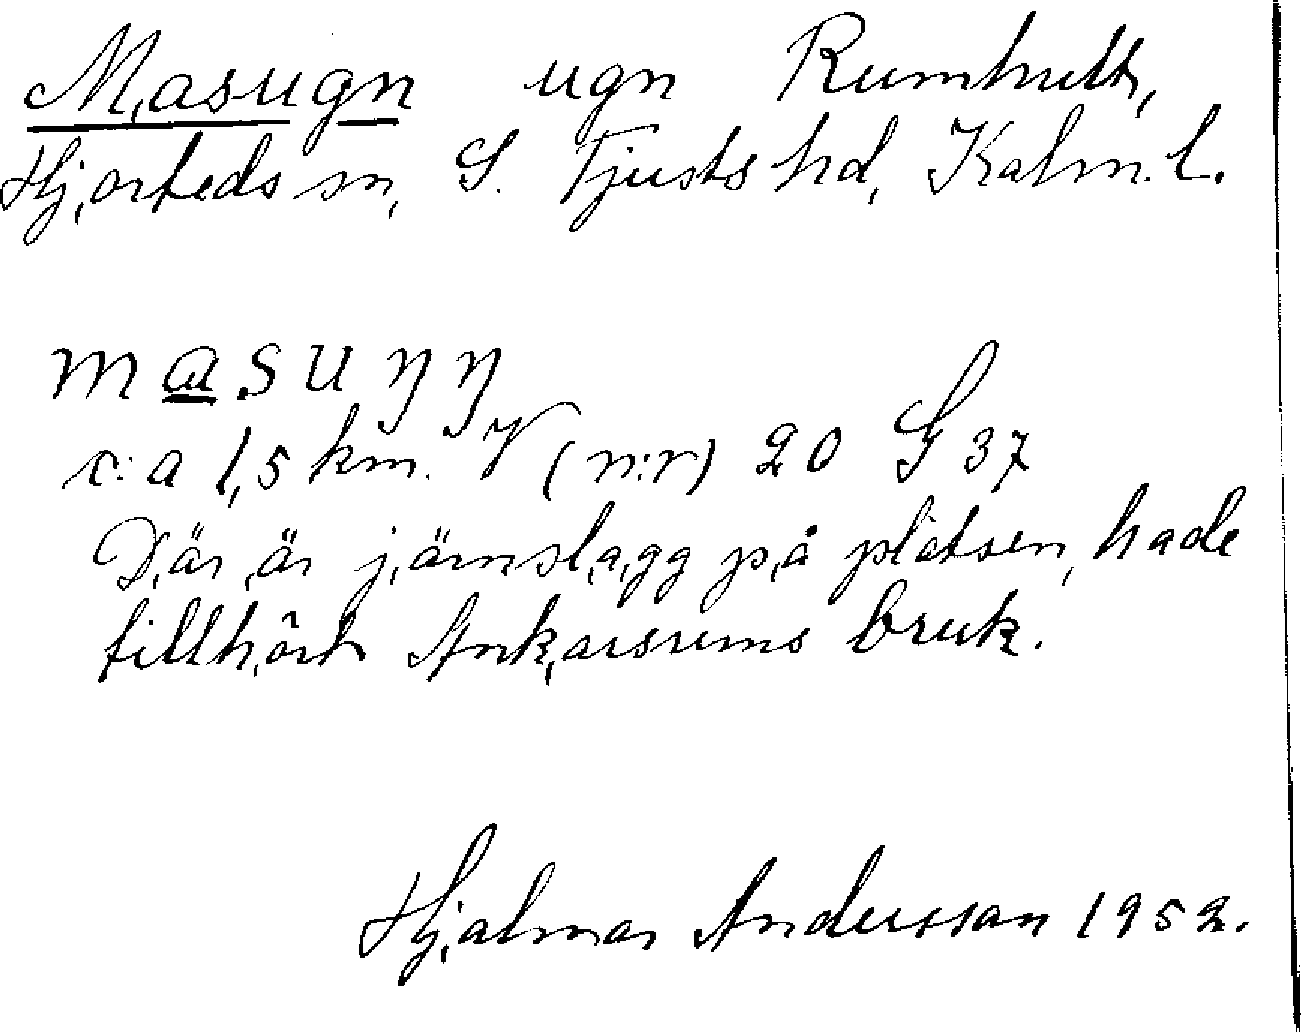 Masugn ugn Rumhult,
Hjorteds sn, S. Tjusts hd, Kalm. l.
masuŋŋ
c:a 1,5 km. V (n:r) 20 G 37
Där är järnslagg på platsen, hade
tillhört Ankarsrums bruk.
Hjalmar Andersson 1952.